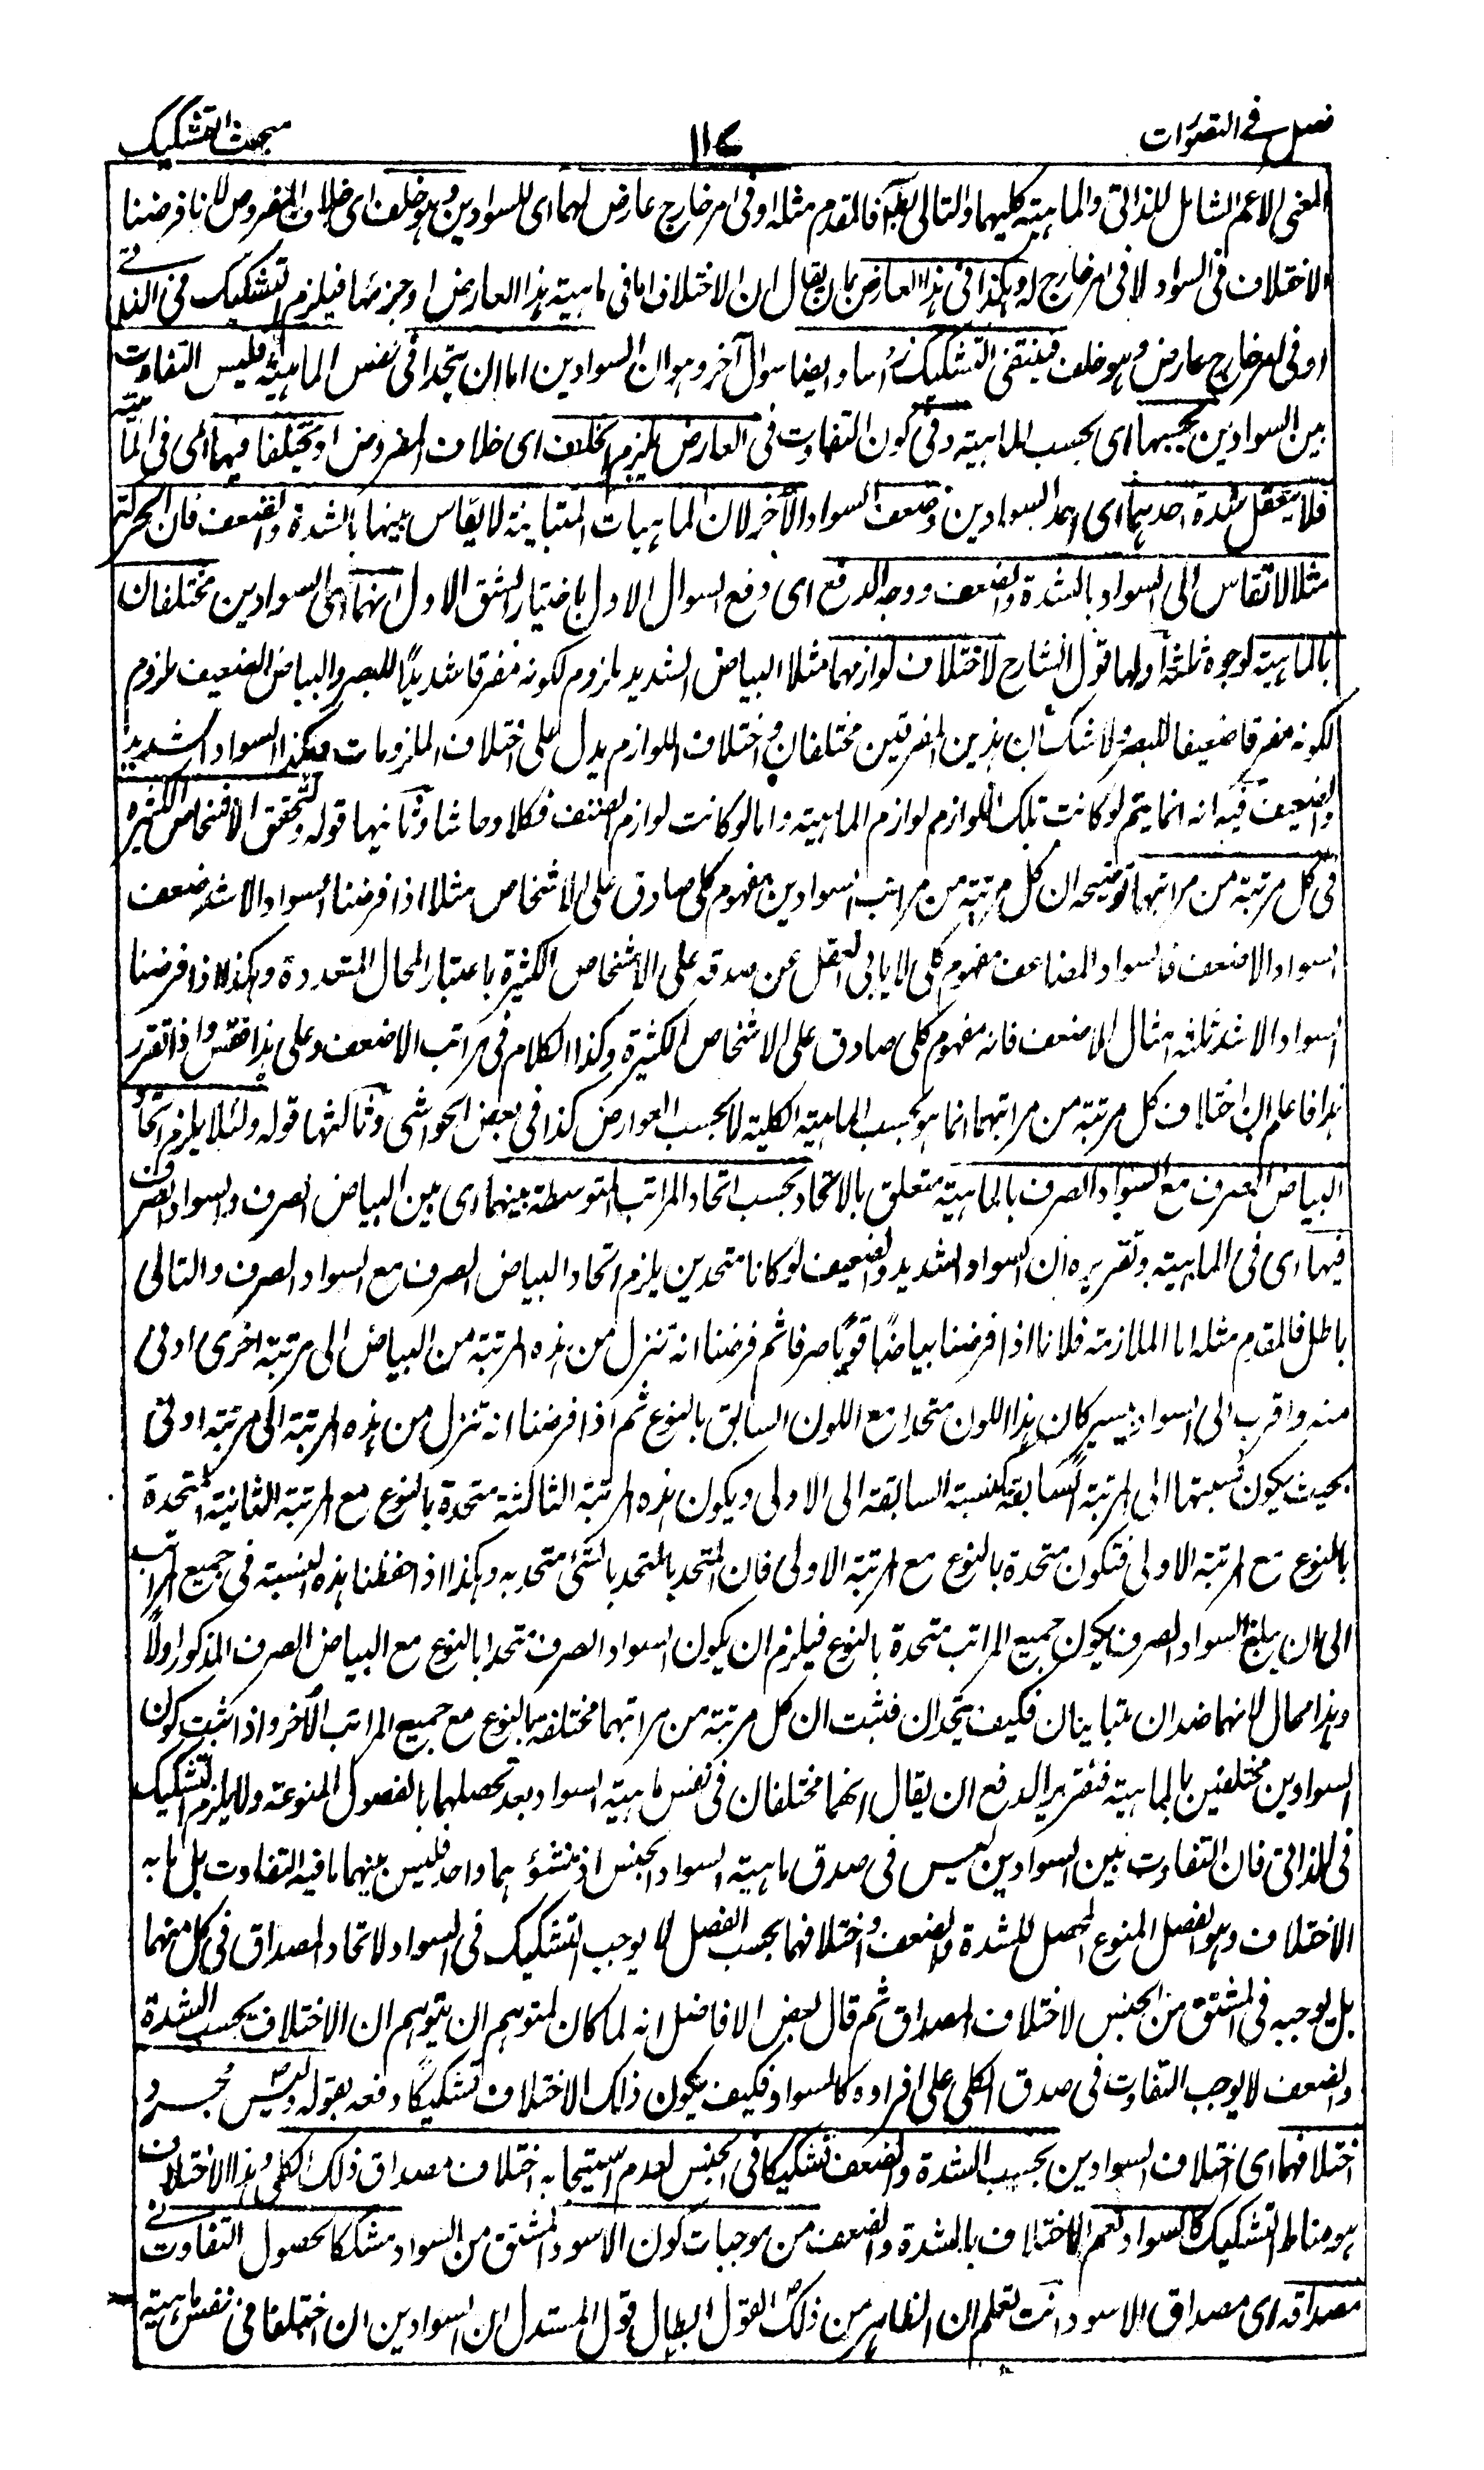 فصل في التصورات
۱۱۷
مبحث التشكيك
المعنى الاعم الشامل للذاتى والماهية كليهما والتالى بط فالمقدم مثله او فى امر خارج عارض لهما اى للسوادين وهو خلف اى خلاف المفروض لانا فرضنا
الاختلاف فى السواد لا فى امر خارج له وهكذا فى هذا العارض بان يقال ان الاختلاف اما فى ماهية هذا العارض او جزئها فيلزم التشكيك فى الذاتي
او فى امر خارج عارض وهو خلف فينتفى التشكيك راسا وايضا سوال آخر وهو ان السوادين اما ان يتحدا فى نفس الماهية فليس التفاوت
بين السوادين بحسبها اى بحسب الماهية وفى كون التفاوت فى العارض يلزم الخلف اى خلاف المفروض او يختلفا فيها اى فى الماهية
فلا يتعقل شدة احدهما اى احد السوادين وضعف السواد الآخر لان الماهيات المتباينة لا يقاس بينها بالشدة والضعف فان الحركة
مثلا لا تقاس الى السواد بالشدة والضعف ووجه الدفع اى دفع السوال الاول باختيار الشق الاول انهما اى السوادين مختلفان
بالماهية لوجوه ثلثة اولها قول الشارح لاختلاف لوازمهما مثلا البياض الشديد ملزوم لكونه مفرقا شديدًا للبصر والبياض الضعيف ملزوم
لكونه مفرقا ضعيفا للبصر ولا شك ان هذين المفرقين مختلفان واختلاف اللوازم يدل على اختلاف الملزومات وهكذا السواد الشديد
والضعيف فيه انه انما يتم لو كانت تلك اللوازم لوازم الماهية واما لو كانت لوازم الصنف فكلا وحاشا وثانيها قوله ولتحقق الاشخاص الكثيرة
فى كل مرتبة من مراتبهما توضيحه ان كل مرتبة من مراتب السوادين مفهوم كلى صادق على الاشخاص مثلا اذا فرضنا السواد الاشد ضعف
السواد الاضعف فالسواد المضاعف مفهوم كلى لا يابى العقل عن صدقه على الاشخاص الكثيرة باعتبار المحال المتعددة وهكذا اذا فرضنا
السواد الاشد ثلثة امثال الاضعف فانه مفهوم كلى صادق على الاشخاص الكثيرة وكذا الكلام فى مراتب الاضعف وعلى هذا فقس واذا تقرر
هذا فاعلم ان اختلاف كل مرتبة من مراتبهما انما هو بحسب الماهية الكلية لا بحسب العوارض كذا فى بعض الحواشى وثالثها قوله ولئلا يلزم اتحاد
البياض الصرف مع السواد الصرف بالماهية متعلق بالاتحاد بحسب اتحاد المراتب المتوسطة بينهما اى بين البياض الصرف والسواد الصرف
فيها اى فى الماهية وتقريره ان السواد الشديد والضعيف لو كانا متحدين يلزم اتحاد البياض الصرف مع السواد الصرف والتالى
باطل فالمقدم مثله اما الملازمة فلانا اذا فرضنا بياضًا قويًا صرفا ثم فرضنا انه تنزل من هذه المرتبة من البياض الى مرتبة اخرى ادنى
منه واقرب الى السواد بيسير كان هذا اللون متحدا مع اللون السابق بالنوع ثم اذا فرضنا انه تنزل من هذه المرتبة الى مرتبة ادنى
بحيث يكون نسبتها الى المرتبة السابقة كنسبة السابقة الى الاولى ويكون هذه المرتبة الثالثة متحدة بالنوع مع المرتبة الثانية المتحدة
بالنوع مع المرتبة الاولى فتكون متحدة بالنوع مع المرتبة الاولى فان المتحد بالمتحد بالشئ متحد به وهكذا اذا حفظنا هذه النسبة فى جميع المراتب
الى ان يبلغ السواد الصرف يكون جميع المراتب متحدة بالنوع فيلزم ان يكون السواد الصرف متحدا بالنوع مع البياض الصرف المذكور اولًا
وهذا محال لانهما ضدان متباينان فكيف يتحدان فثبت ان كل مرتبة من مراتبهما مختلفة بالنوع مع جميع المراتب الأخر واذا ثبت كون
السوادين مختلفين بالماهية فتقرير الدفع ان يقال انهما مختلفان فى نفس ماهية السواد بعد تحصلهما بالفصول المنوعة ولا يلزم التشكيك
فى الذاتى فان التفاوت بين السوادين ليس فى صدق ماهية السواد الجنس اذ منشؤهما واحد فليس بينهما ما فيه التفاوت بل ما به
الاختلاف وهو الفصل المنوع المحصل للشدة والضعف واختلافهما بحسب الفصل لا يوجب التشكيك فى السواد لاتحاد المصداق فى كل منهما
بل يوجبه فى المشتق من الجنس لاختلاف المصداق ثم قال بعض الافاضل انه لما كان لمتوهم ان يتوهم ان الاختلاف بحسب الشدة
والضعف لا يوجب التفاوت فى صدق الكلى على افراده كالسواد فكيف يكون ذلك الاختلاف تشكيكًا دفعه بقوله وليس مجرد
اختلافهما اى اختلاف السوادين بحسب الشدة والضعف تشكيكا فى الجنس لعدم استيجابه اختلاف مصداق ذلك الكلى وهذا الاختلاف
هو مناط التشكيك كالسواد نعم الاختلاف بالشدة والضعف من موجبات كون الاسود المشتق من السواد مشككا لحصول التفاوت في
مصداقه اى مصداق الاسود انت تعلم ان الظاهر من ذلك القول ابطال قول المستدل ان السوادين ان اختلفا فى نفس ماهية